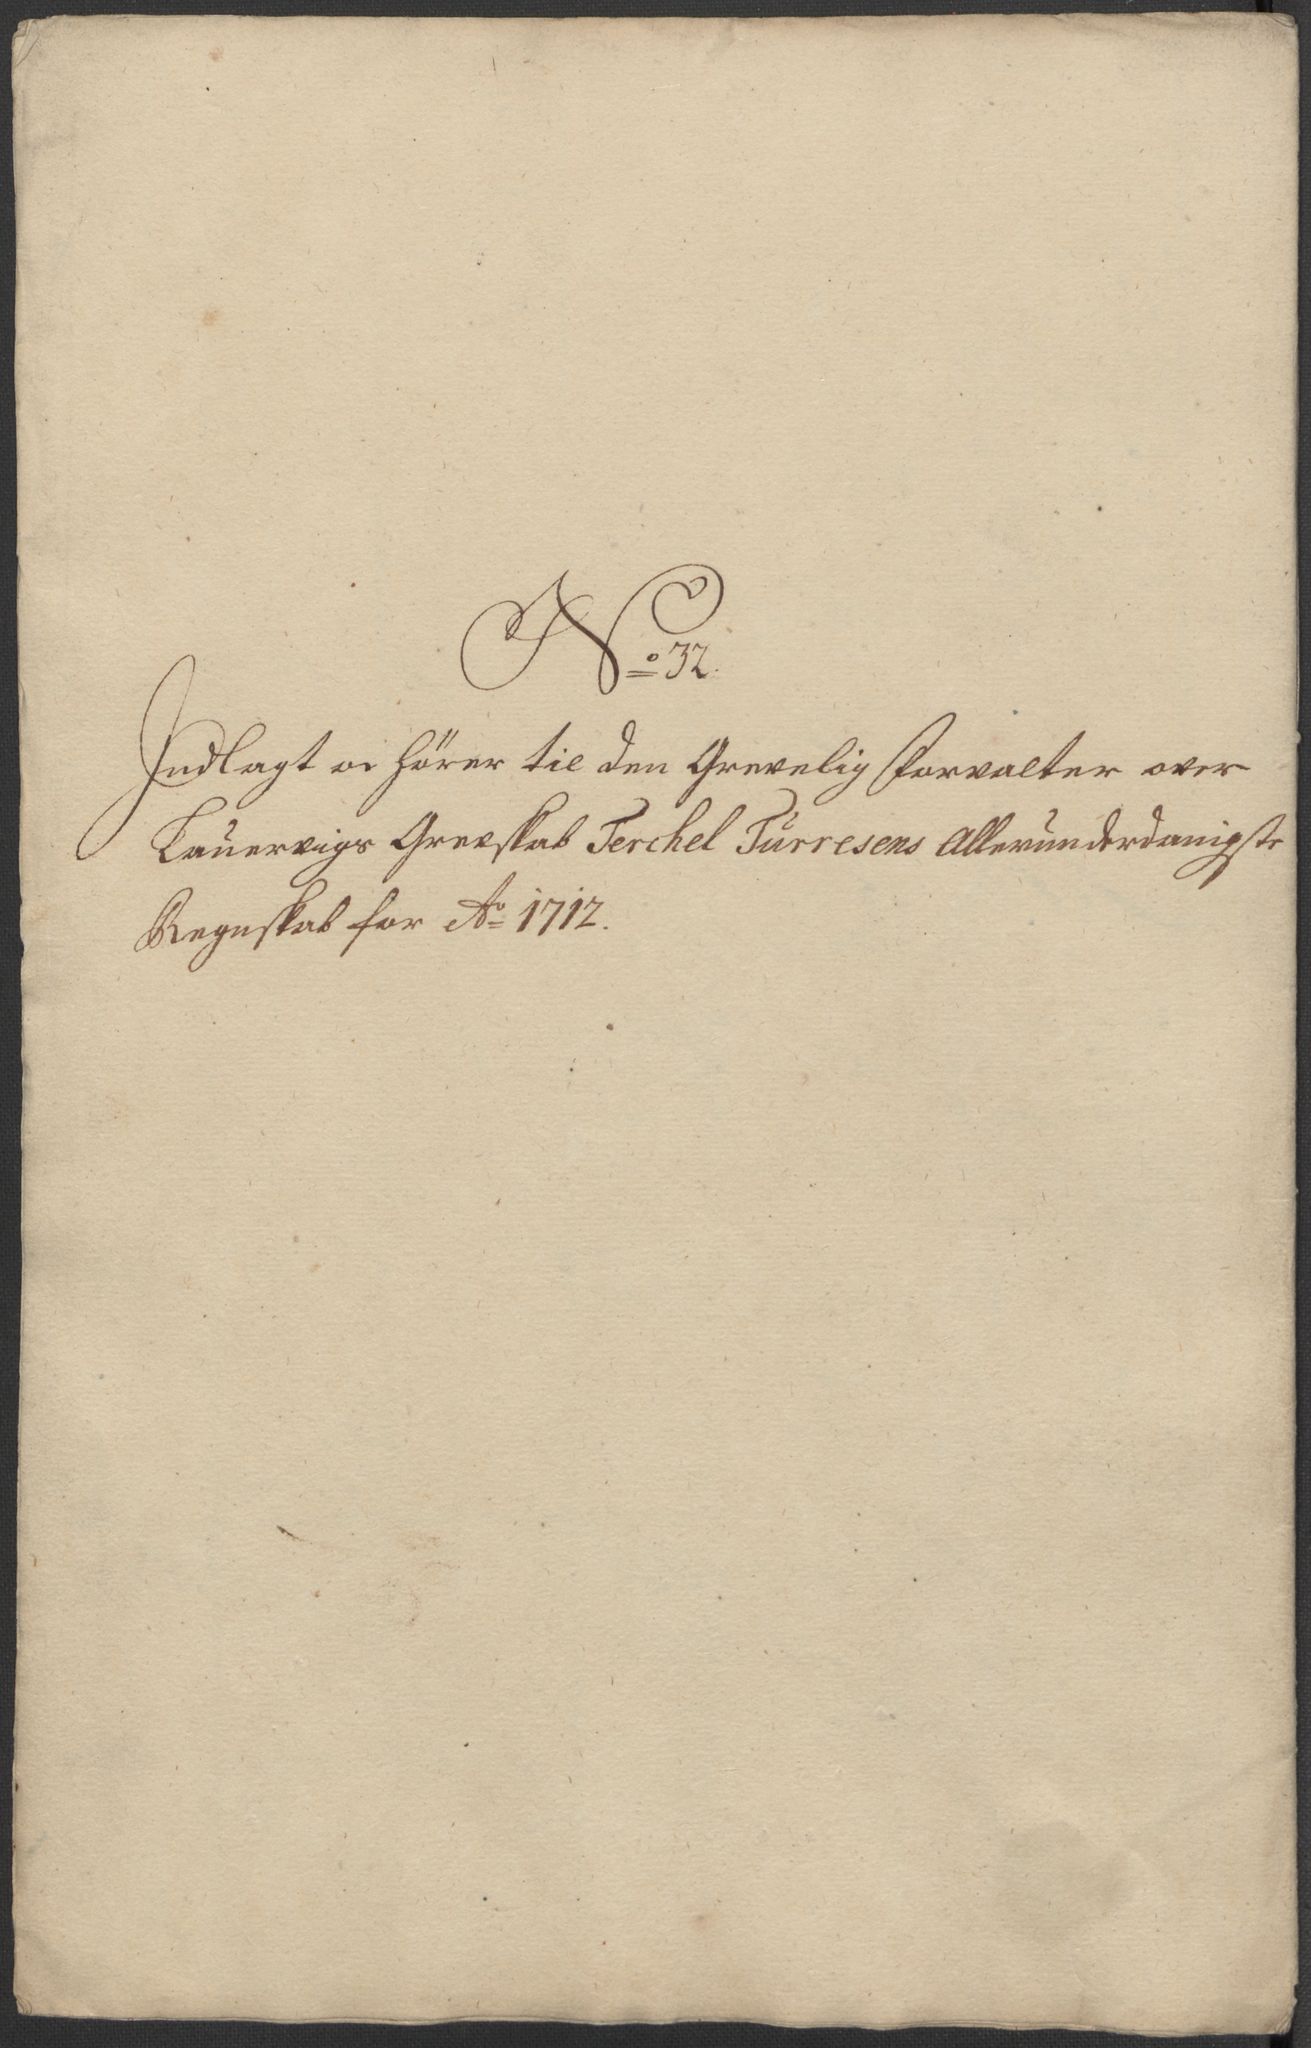 No 32.
Indlagt oc hörer til den Grevelig Forvalter over
Lauervigs Grevskab Terchel Turresens Allerunderdanigste
Regnskab for Ao 1712.